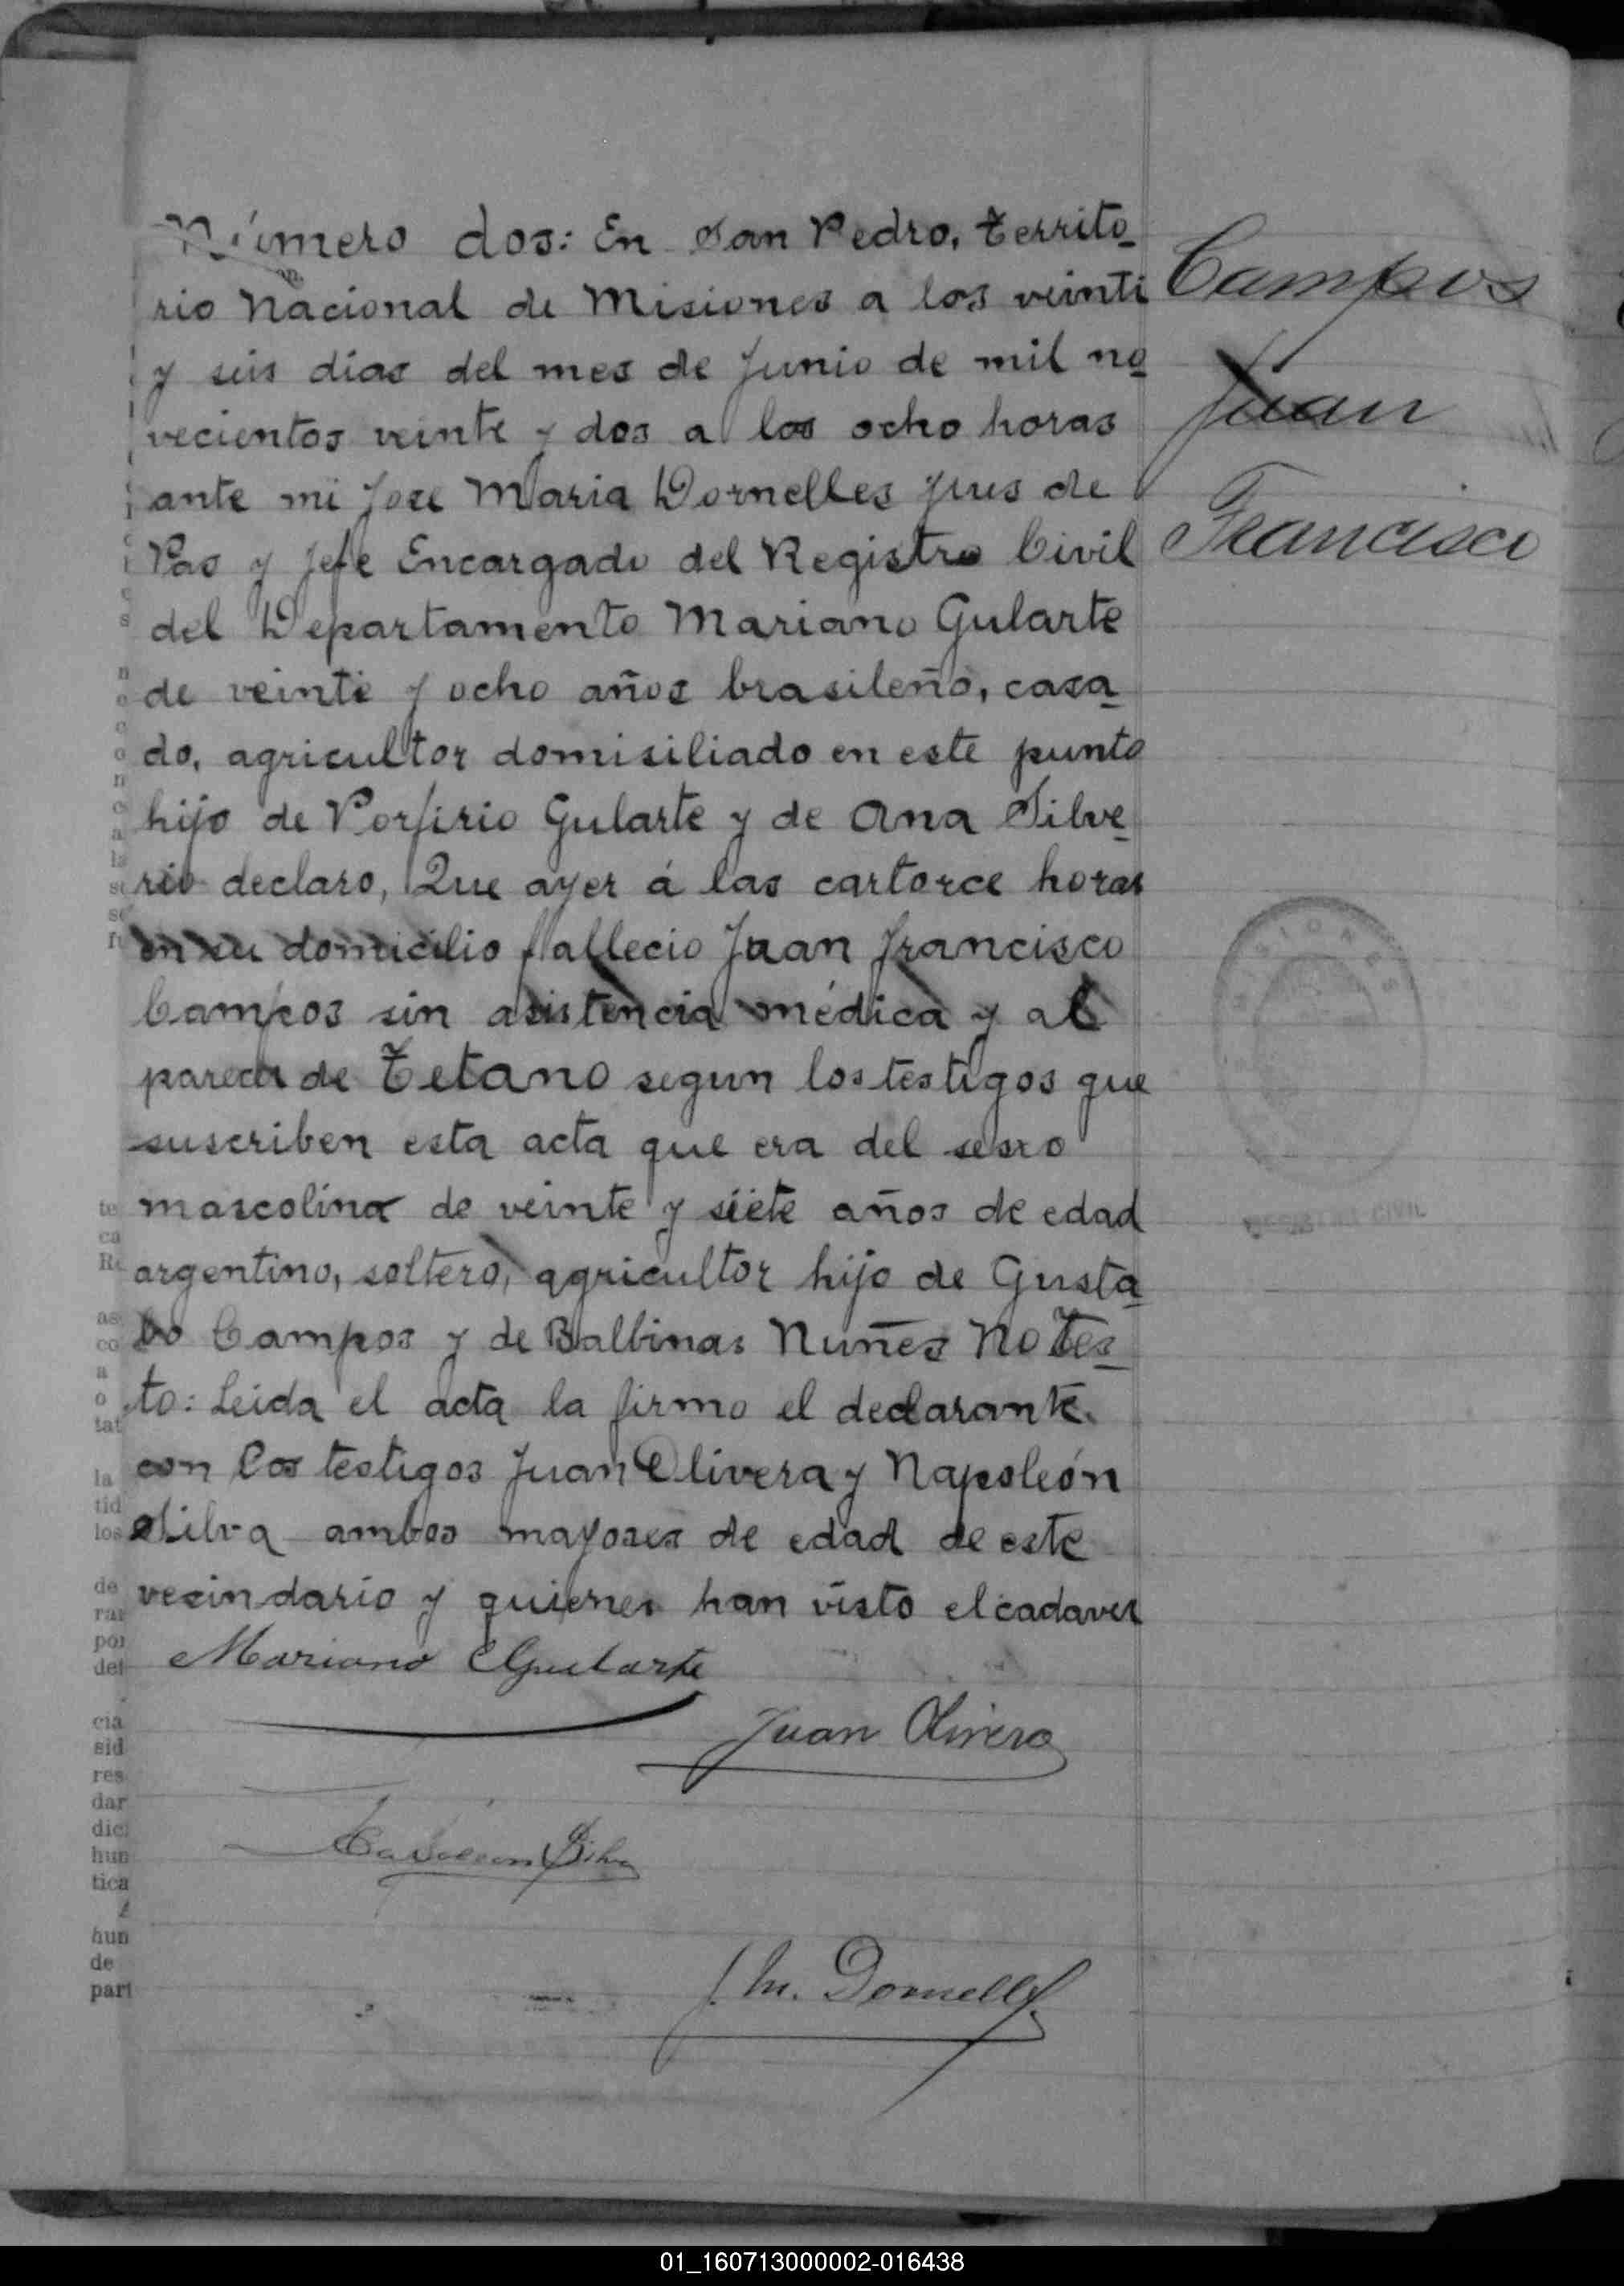 Número dos: En San Pedro, territo
rio Nacional de Misiones a los veinti
y seis días del mes de Junio de mil no
vecientos veinte y dos a las ocho horas
ante mi Jose Maria Dornelles Jues de
Pas y Jefe Encargado del Registro Civil
del Departamento Mariano Gularte
de veinte y ocho años brasileño, casa
do, agricultor domisiliado en este punto
hijo de Porfirio Gularte y de Ana Silve
rio declaro, Que ayer á las cartorce horas
en su domicilio fallecio Juan Francisco
Campos sin asistencia médica y al
parecer de Tetano segun los testigos que
suscriben esta acta que era del sesxo
mascolino de veinte y siete años de edad
argentino, soltero, agricultor hijo de Gusta
bo Campos y de Balbinas Nuñes No tes
to: Leida el acta la firmo el declarante
con los testigos Juan Olivera y Napoleón
Silva ambos mayores de edad de este
vecindario y quienes han visto el cadaver
Mariano Gularte
Juan Olivera
Napoleon Silva
J. M. Dornelles
Campos
Juan
Francisco
MISIONES
REGISTRO CIVIL
te
ca
as
co
a
o
tat
la
tid
los
de
rar
por
del
cia
sid
res
dar
dici
hun
tica
hun
de
part
01_160713000002-016438